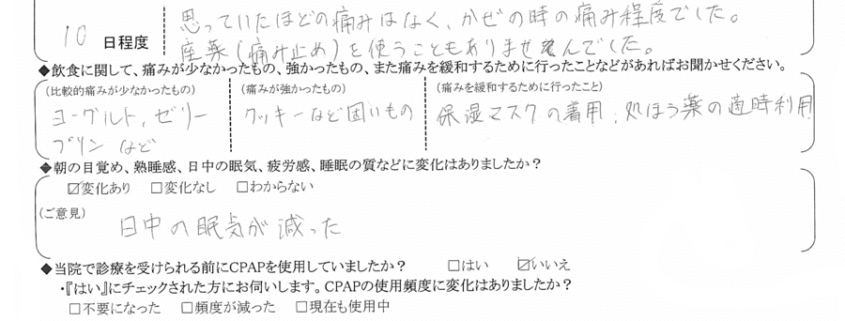 思っていたほどの痛みはなく、かぜの時の痛み程度でした。
10 日程度
座薬(痛み止め)を使うこともありませんでした。
◆飲食に関して、痛みが少なかったもの、強かったもの、また痛みを緩和するために行ったことなどがあればお聞かせください。
(比較的痛みが少なかったもの) (痛みが強かったもの) (痛みを緩和するために行ったこと)
ヨーグルト、ゼリー クッキーなど固いもの 保湿マスクの着用、処ほう薬の適時利用
プリンなど
◆朝の目覚め、熟睡感、日中の眠気、疲労感、睡眠の質などに変化はありましたか?
☑変化あり □変化なし □わからない
(ご意見)
日中の眠気が減った
◆当院で診療を受けられる前にCPAPを使用していましたか? □はい ☑いいえ
・『はい』にチェックされた方にお伺いします。CPAPの使用頻度に変化はありましたか?
□不要になった □頻度が減った □現在も使用中